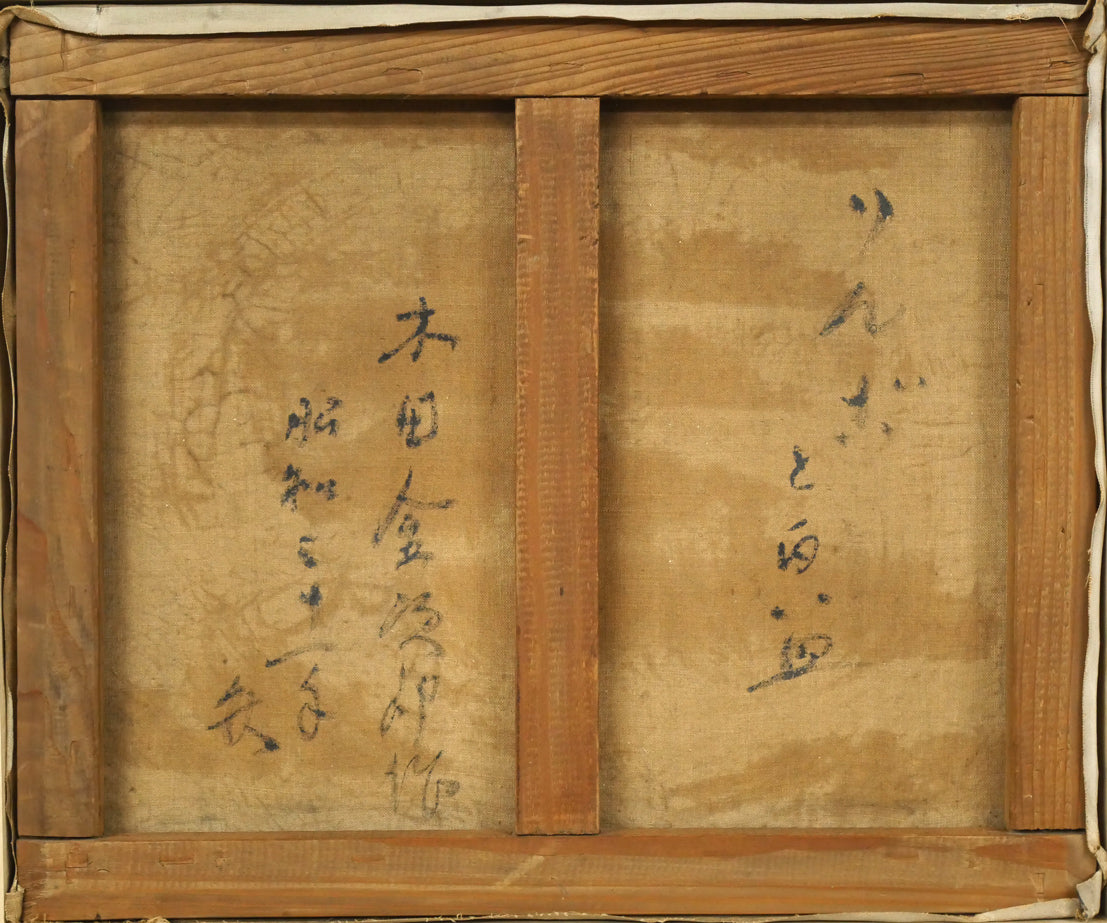 りんご
と白い皿
木田金次郎作
昭和三十一年